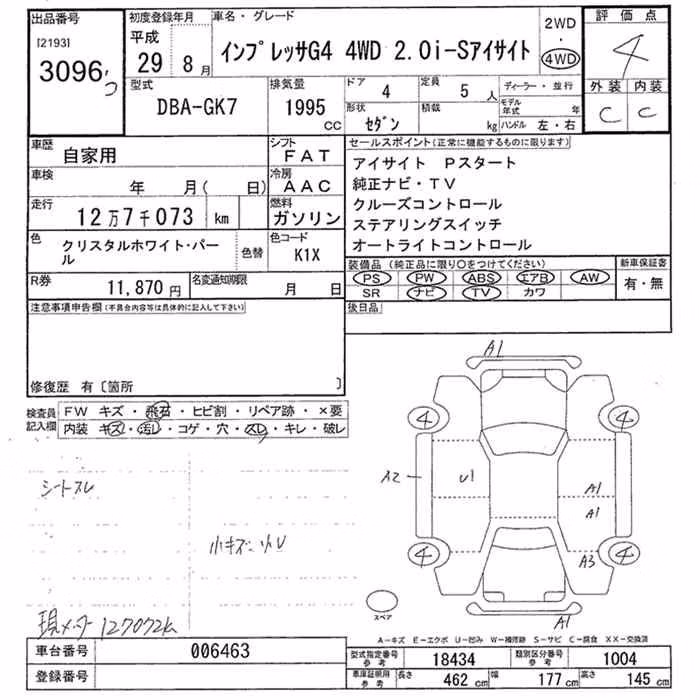 出品番号 [2193] 3096
初度登録年月 平成 29 8月
車名・グレード インプレッサG4 4WD 2.0i-Sアイサイト
2WD ・ 4WD
評価点 4
外装 C 内装 C
型式 DBA-GK7
排気量 1995 CC
ドア 4
定員 5 人
ディーラー・並行
形状 セダン
積載 kg
モデル年式 年
ハンドル 左・右
車歴 自家用
シフト FAT
車検 年 月( 日)
冷房 AAC
走行 12万7千073 km
燃料 ガソリン
色 クリスタルホワイト・パール
色替
色コード K1X
R券 11,870円
名変通知期限 月 日
セールスポイント(正常に機能するものに限ります)
アイサイト Pスタート
純正ナビ・TV
クルーズコントロール
ステアリングスイッチ
オートライトコントロール
装備品(純正品に限り○をつけてください)
PS PW ABS エアB AW
SR ナビ TV カワ
新車保証書 有・無
後日品
注意事項申告欄(不具合内容等は具体的に記入して下さい)
修復歴 有〔箇所 〕
検査員記入欄
FW キズ・飛石・ヒビ割・リペア跡・×要
内装 キズ・汚レ・コゲ・穴・スレ・キレ・破レ
シートスレ
小キズ 小U
現メーター 127072k
A1
4 4
A2 U1 A1
A1
4 4
A3
スペア
A1
A-キズ E-エクボ U-凹み W-補修跡 S-サビ C-腐食 XX-交換済
車台番号 006463
登録番号
型式指定番号 参考 18434
類別区分番号 参考 1004
車庫証明用 参考 長さ 462 cm 幅 177 cm 高さ 145 cm